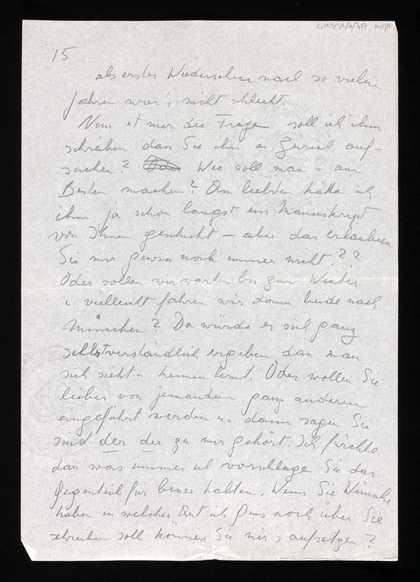 15
als erstes Wiedersehen nach so vielen
Jahren war, nicht schlecht.
Nun ist nur die Frage soll ich ihm
schreiben dass Sie ihn in Zürich auf-
suchen? Wie soll man's am
Besten machen? Am liebsten hätte ich
ihm ja schon längst ein Manuskript
von Ihnen geschickt – aber das erlauben
Sie mir gewiss noch immer nicht??
Oder sollen wir warten bis zum Winter
u vielleicht fahren wir dann beide nach
München? Da würde es sich ganz
selbstverständlich ergeben dass man
sich sieht u kennen lernt. Oder wollen Sie
lieber von jemandem ganz anderen
eingeführt werden u. dann sagen Sie
sind der der zu mir gehört. Ich fürchte
dass was immer ich vorschlage Sie das
Gegenteil für besser halten. Wenn Sie Wünsche
haben in welcher Art ich noch über Sie
schreiben soll können Sie mir's aufsetzen?